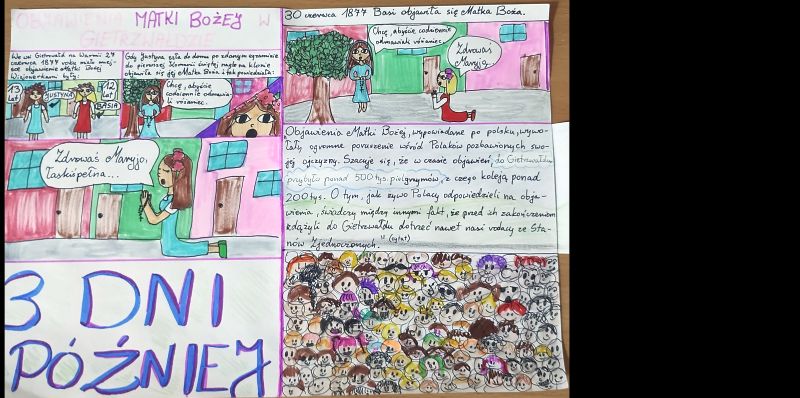 OBJAWIENIA MATKI BOŻEJ W
GIETRZWAŁDZIE
We wsi Gietrzwałd na Warmii 27
czerwca 1877 roku miało miej-
sce objawienie Matki Bożej
Wizjonerkami były:
13
lat
JUSTYNA
12
lat
BASIA
Gdy Justyna szła do domu po zdanym egzaminie
do pierwszej Komunii świętej nagle na klonie
objawiła się jej Matka Boża i tak powiedziała:
Chcę, abyście
codziennie odmawia-
li różaniec.
Zdrowaś Maryjo,
łaskiś pełna...
3 DNI
PÓŹNIEJ
30 czerwca 1877 Basi objawiła się Matka Boża.
Chcę, abyście codziennie
odmawiali różaniec.
Zdrowaś
Maryjo...
Objawienia Matki Bożej, wypowiadane po polsku, wywo-
łały ogromne poruszenie wśród Polaków pozbawionych swo-
jej ojczyzny. Szacuje się, że w czasie objawień, do Gietrzwałdu
przybyło ponad 500 tys. pielgrzymów, z czego koleją ponad
200 tys. O tym, jak żywo Polacy odpowiedzieli na obja-
wienia, świadczy między innymi fakt, że przed ich zakończeniem
zdążyli do Gietrzwałdu dotrzeć nawet nasi rodacy ze Sta-
nów Zjednoczonych." (cytat)